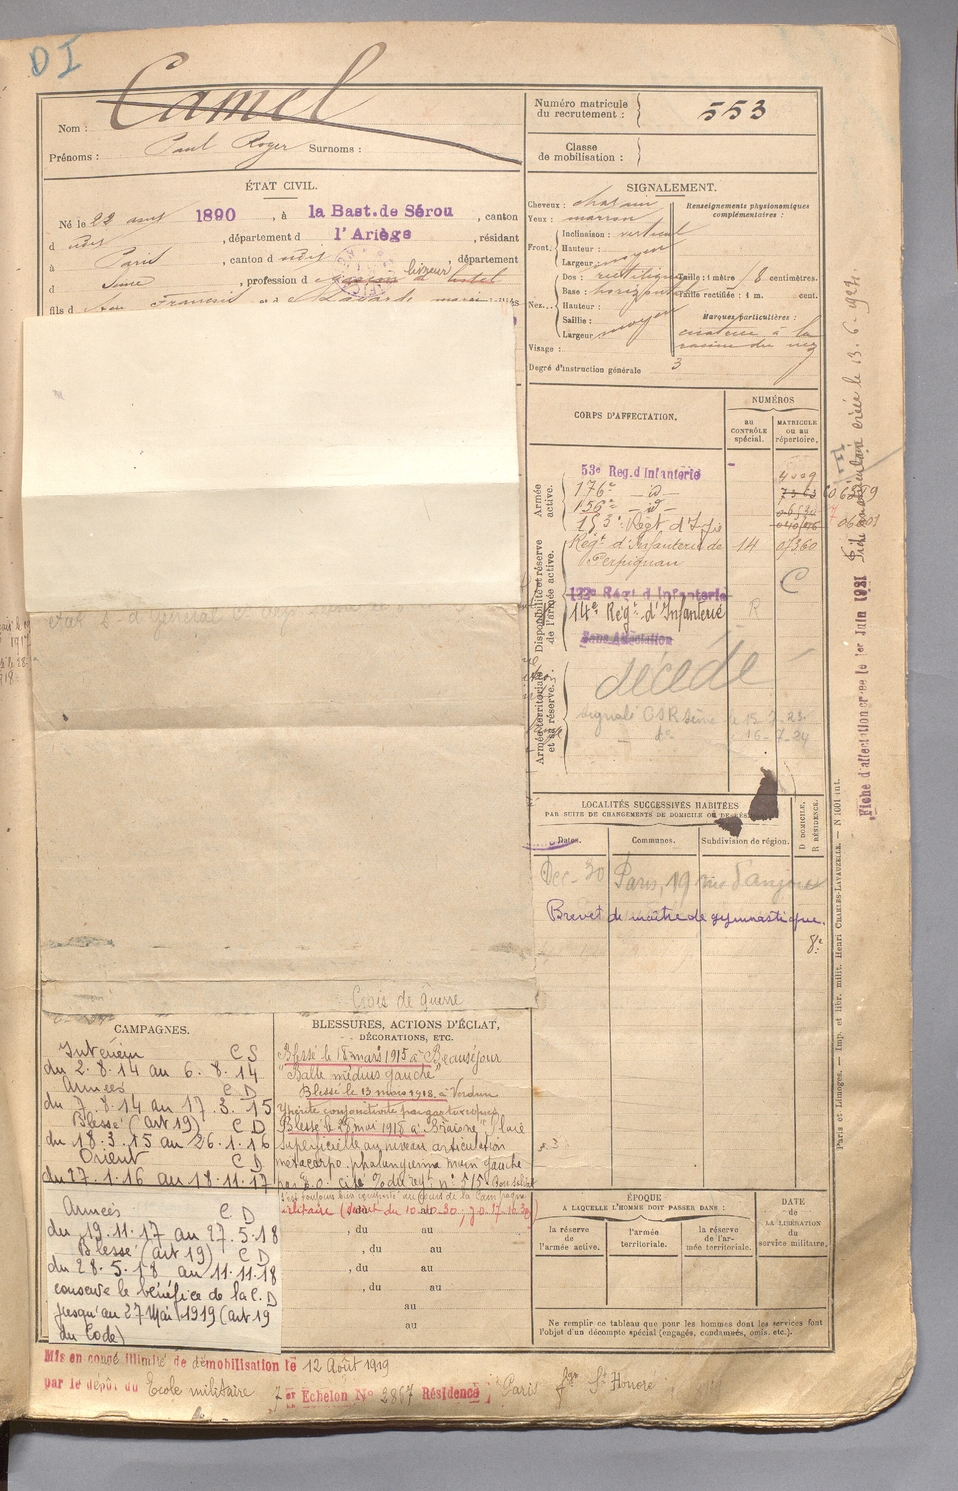 D I
Camel
Nom :
Prénoms : Paul Roger Surnoms :
Numéro matricule du recrutement : 553
Classe de mobilisation :
ÉTAT CIVIL.
Né le 22 août 1890, à la Bast. de Sérou, canton
d udit, département d l'Ariège, résidant
à Paris, canton d udit, département
d Seine, profession d livreur hotel
fils d François et d
SIGNALEMENT.
Cheveux : chatain
Yeux : marron
Front. Inclinaison : vertical
Hauteur : moyen
Largeur : moyen
Nez... Dos : rectiligne
Base : horizontale
Hauteur :
Saillie :
Largeur moyen
Visage :
Degré d'instruction générale 3
Renseignements physionomiques complémentaires :
Taille : 1 mètre centimètres.
Taille rectifiée : 1 m. cent.
Marques particulières :
à la
racine du nez
CORPS D'AFFECTATION.
NUMÉROS
AU CONTRÔLE spécial.
MATRICULE OU AU répertoire.
Armée active.
53e Reg. d Infanterie
176e - d -
156e - d -
153e Régt d'Infie
Disponibilité et réserve de l'armée active.
Régt d'Infanterie de 14 07360
Perpignan
C
122e Rég't d'Infanterie
14e Régt d'Infanterie R
Sans Affectation
Armée territoriale et sa réserve.
décédé
signalé Seine le 15-7-23
do 16-7-24
Fiche matriculaire créée le 13.6-1927.
Fiche d'affectation créée le 1er Juin 1931
LOCALITÉS SUCCESSIVES HABITÉES
PAR SUITE DE CHANGEMENTS DE DOMICILE OU DE
Dates.
Communes.
Subdivision de région.
D DOMICILE. R RÉSIDENCE.
Dec-30 Paris, 19 rue d'anjou
8e
Brevet de maître de gymnastique.
Paris et Limoges. — Imp. et libr. milit. Henri CHARLES-LAVAUZELLE. — N 1001 int.
Croix de Guerre
CAMPAGNES.
Intérieur C S
du 2.8.14 au 6.8.14
Armées C D
du 7.8.14 au 17.3.15
Blessé (art 19) C D
du 18.3.15 au 26.1.16
Orient C D
du 27.1.16 au 18.11.17
Armées C D
du 19.11.17 au 27.5.18
Blessé (art 19) C D
du 28.5.18 au 11.11.18
conserve le bénéfice de la C. D
jusqu'au 27 Mai 1919 (art 19
du Code)
BLESSURES, ACTIONS D'ÉCLAT, DÉCORATIONS, ETC.
Blessé le 18 mars 1915 à Beauséjour
"Balle médius gauche"
Blessé le 13 mars 1918 à Verdun
Ypérite conjonctivite par gaz toxiques
Blessé le 28 mai 1918 à Braisne "Plaie
superficielle au niveau articulation
metacarpo. phalangienne main gauche
cité régt n° 515 Bon soldat
s'est toujours bien conduit au cours de la Campagne
du 10.10.30, J.O. 17.10.30)
, du au
, du au
, du au
, du au
, du au
au
au
ÉPOQUE
A LAQUELLE L'HOMME DOIT PASSER DANS :
la réserve de l'armée active.
l'armée territoriale.
la réserve de l'armée territoriale.
DATE de LA LIBÉRATION du service militaire.
Ne remplir ce tableau que pour les hommes dont les services font
l'objet d'un décompte spécial (engagés, condamnés, omis, etc.).
Mis en congé illimité de démobilisation le 12 Août 1919
par le dépôt du Ecole militaire Echelon No 2867 Résidence : Paris fbg St Honoré